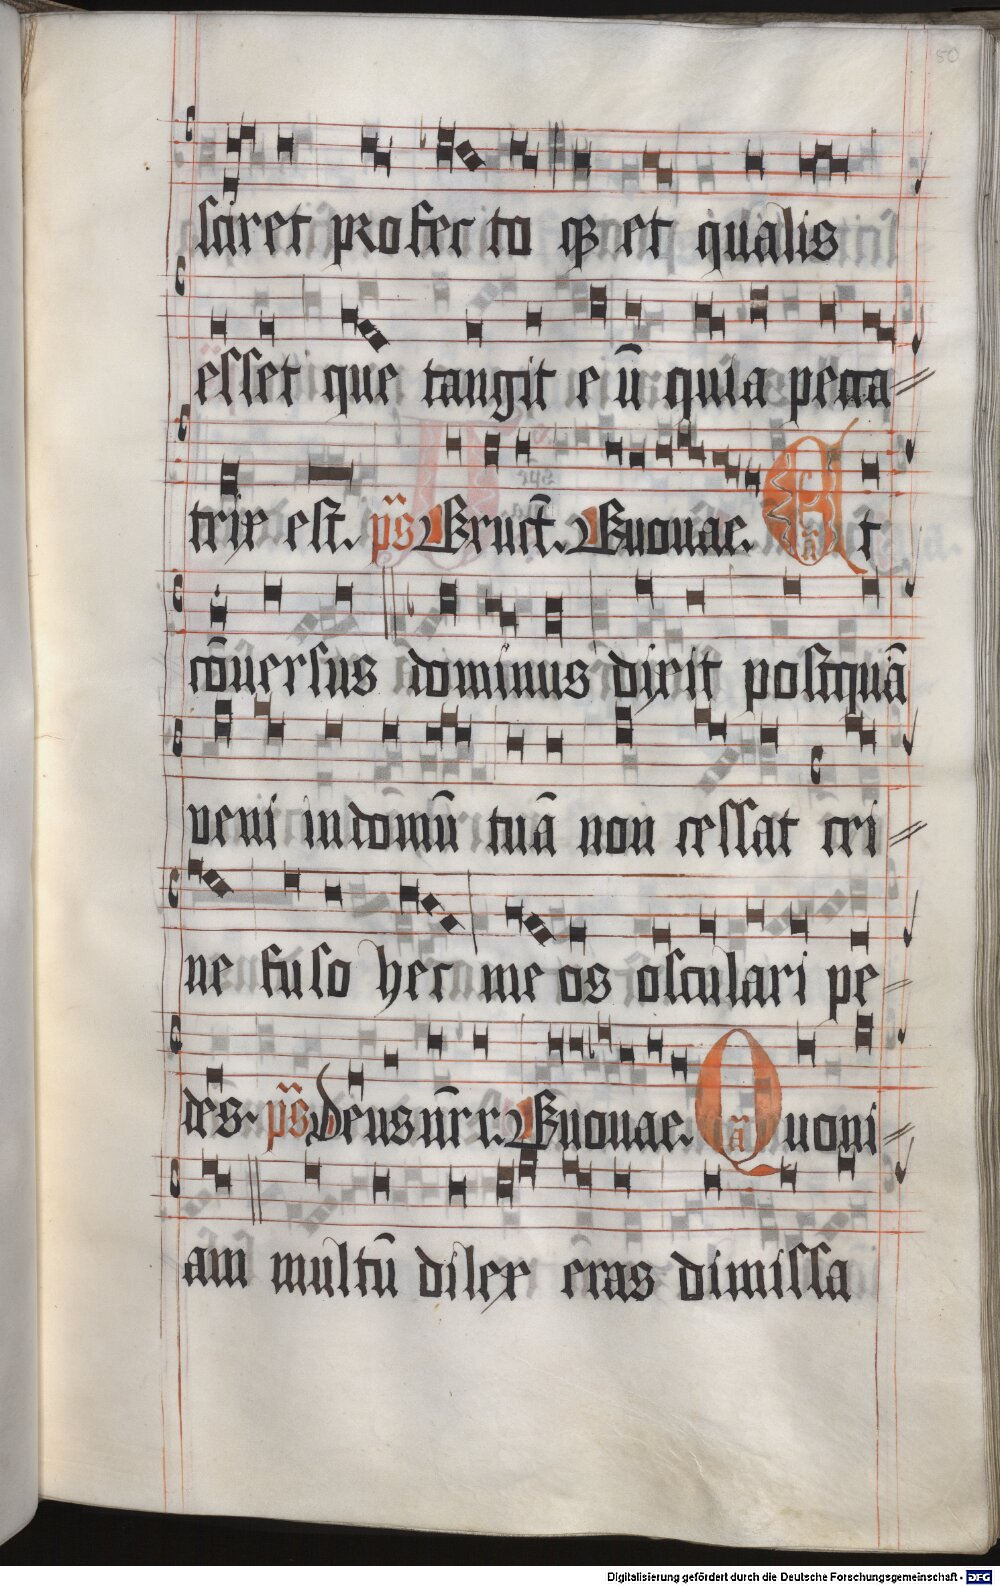 50
sciret profecto qꝫ et qualis
esset que tangit eū quia pecca
trix est. pˢ Eruct̄. Euouae. añ At
cōuersus dominus dixit postquā
veni in domū tuā non cessat cri
ne fuso hec me os osculari pe
des. pˢ Deus nr̄ r. Euouae. añ Quoni
am multū dilex eras dimissa
Digitalisierung gefördert durch die Deutsche Forschungsgemeinschaft - DFG